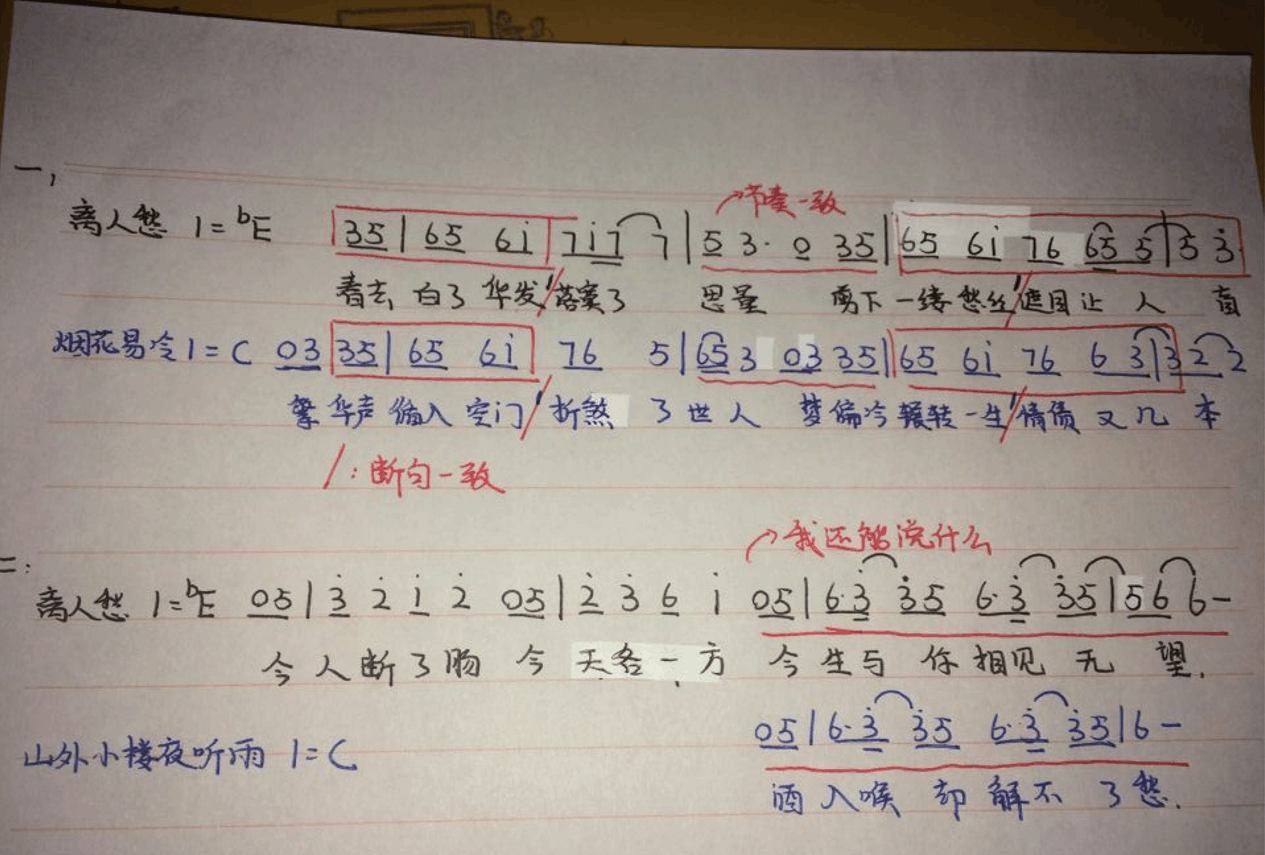 一,
节奏一致
离人愁 1=ᵇE 35|65 6i 7i7 7|5 3· 0 35|65 6i 76 65 5|5 3
看去 白了 华发/落寞了 思量 剪下一缕愁丝/遮目让人 盲
烟花易冷 1=C 03 35|65 6i 76 5|653 03 35|65 6i 76 6 3|3 2 2
繁华声 遁入 空门/折煞 了世人 梦偏冷 辗转一生/情债 又几 本
/:断句一致
我还能说什么
二:
离人愁 1=ᵇE 05|3̇ 2̇ 1̇ 2̇ 05|2̇ 3̇ 6 i 05|6·3̇ 3̇5 6·3̇ 3̇5|56 6-
今人断了肠 今天各一方 今生与你相见无望.
05|6·3̇ 3̇5 6·3̇ 3̇5|6-
山外小楼夜听雨 1=C
酒入喉 却解不了愁.